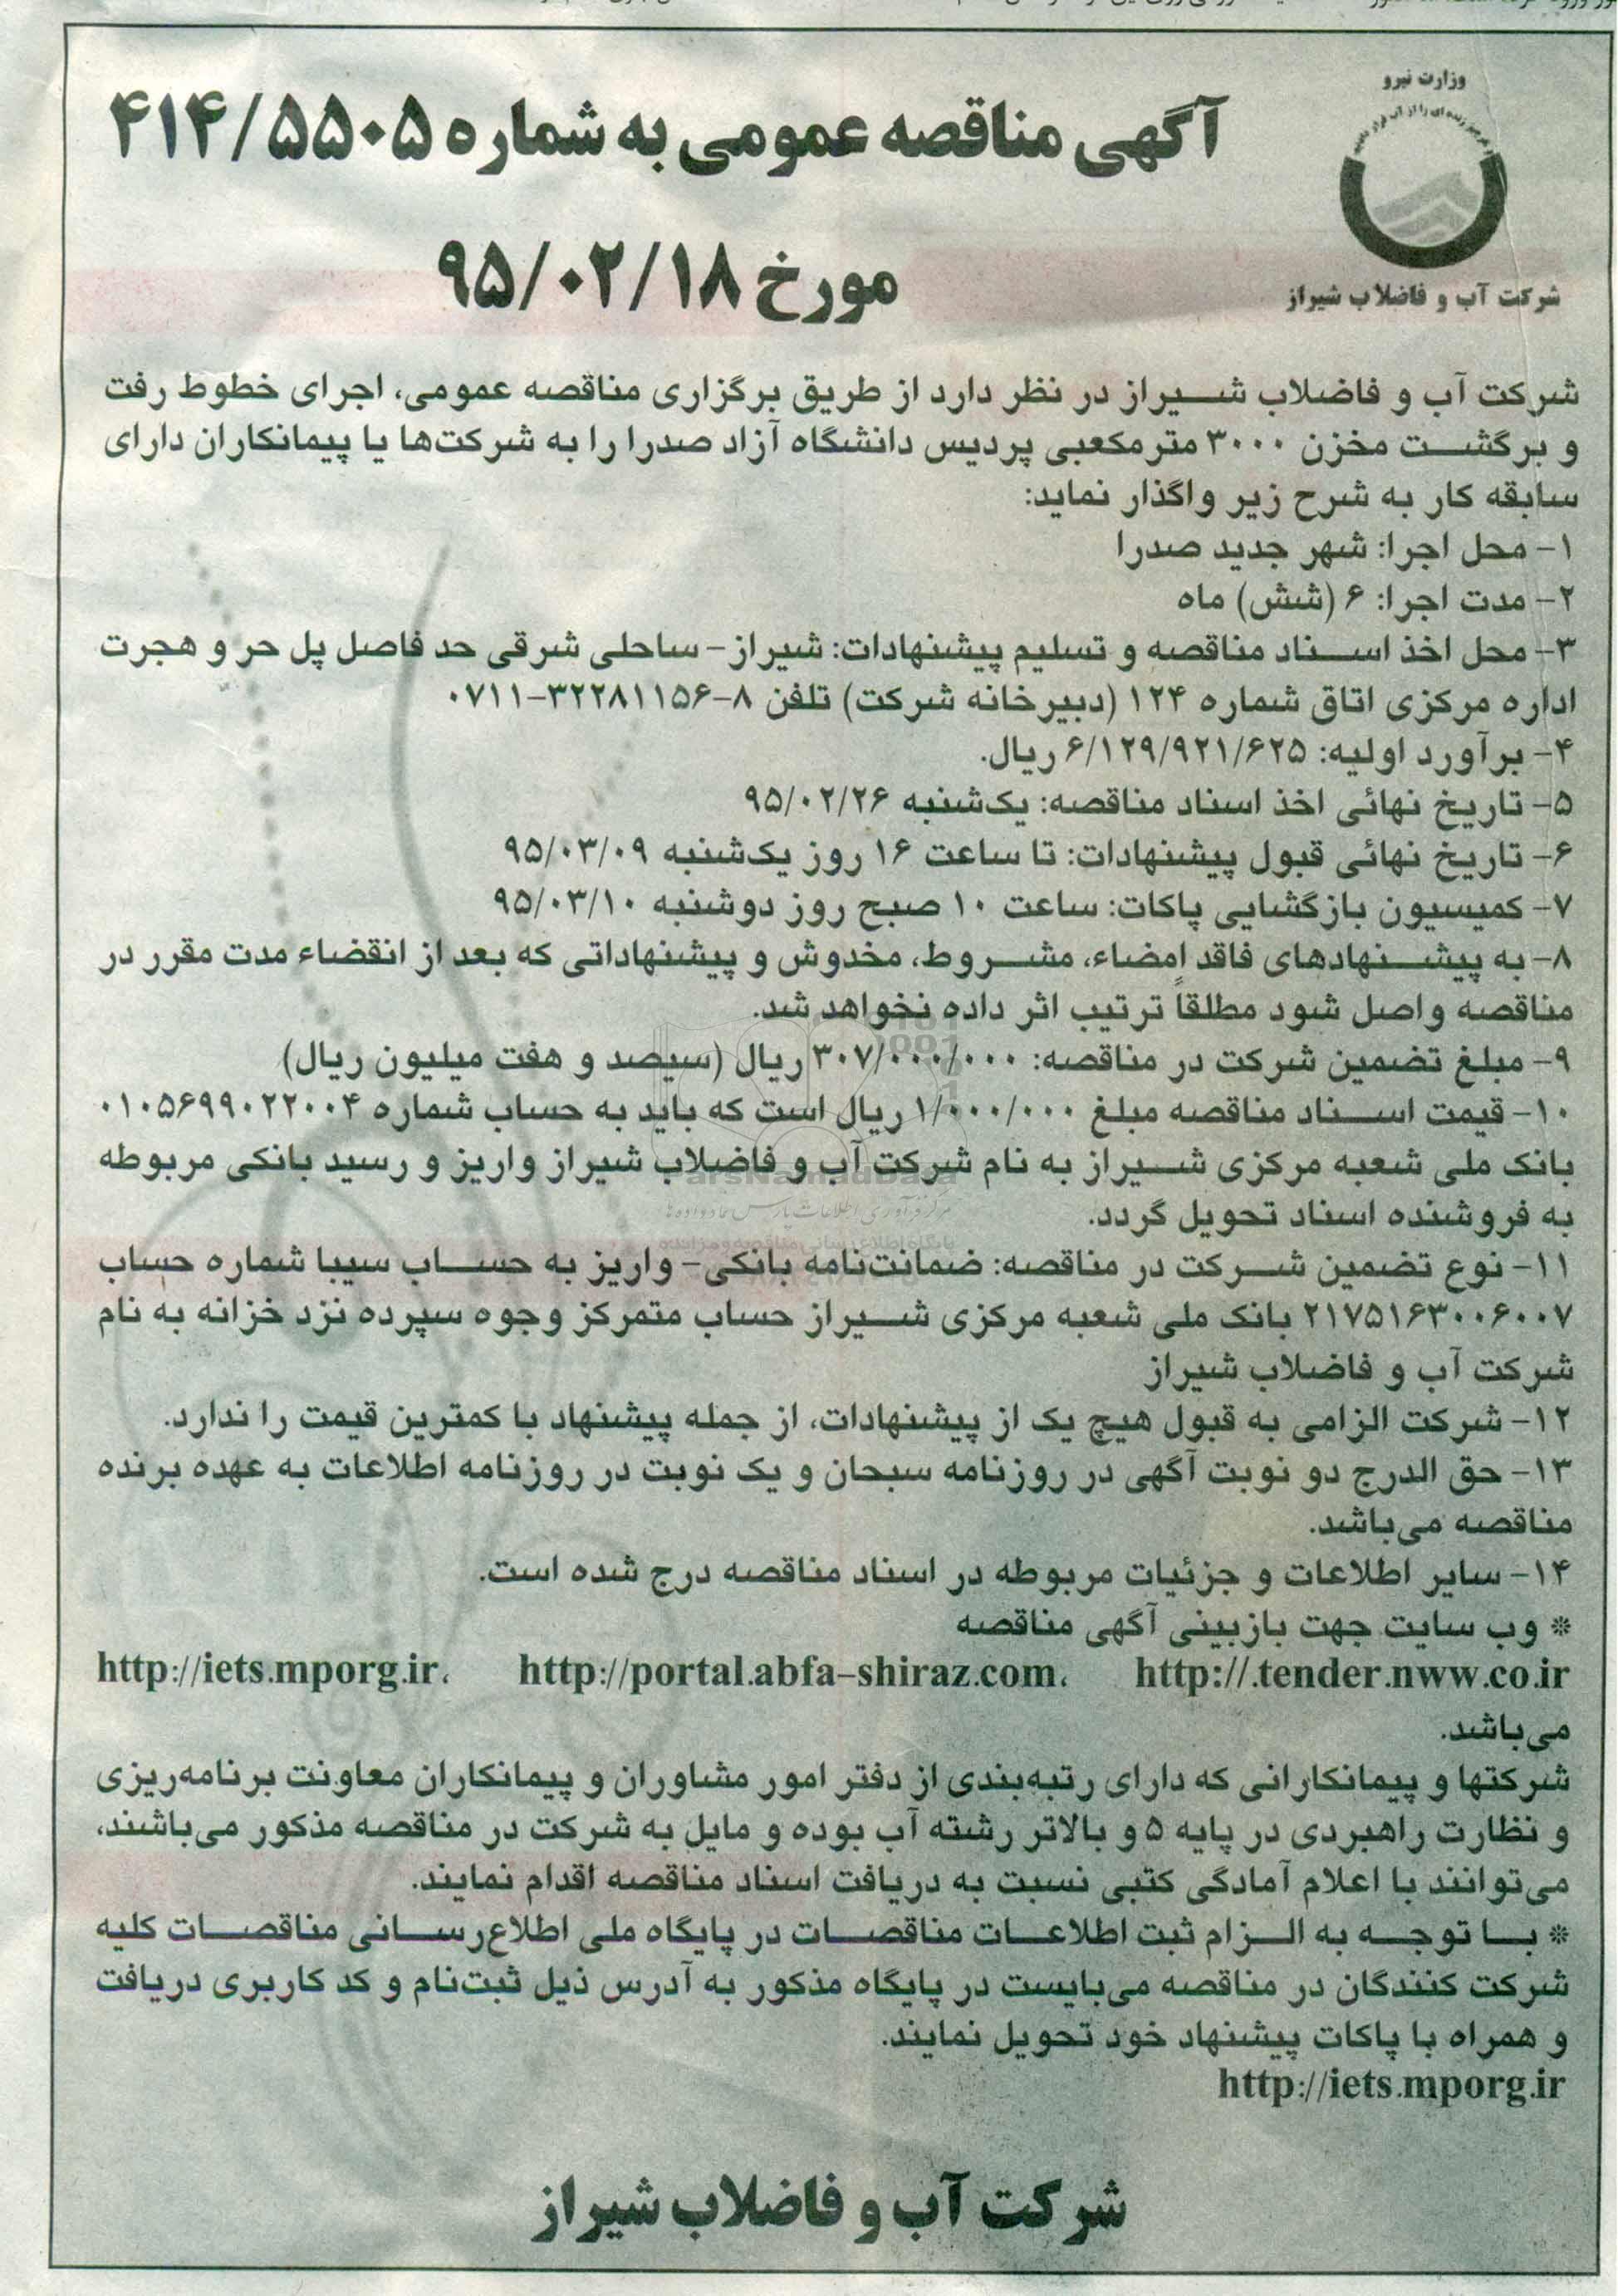 وزارت نیرو
شرکت آب و فاضلاب شیراز
آگهی مناقصه عمومی به شماره ۴۱۴/۵۵۰۵
مورخ ۹۵/۰۲/۱۸
شرکت آب و فاضلاب شیراز در نظر دارد از طریق برگزاری مناقصه عمومی، اجرای خطوط رفت
و برگشت مخزن ۳۰۰۰ مترمکعبی پردیس دانشگاه آزاد صدرا را به شرکت‌ها یا پیمانکاران دارای
سابقه کار به شرح زیر واگذار نماید:
۱- محل اجرا: شهر جدید صدرا
۲- مدت اجرا: ۶ (شش) ماه
۳- محل اخذ اسناد مناقصه و تسلیم پیشنهادات: شیراز- ساحلی شرقی حد فاصل پل حر و هجرت
اداره مرکزی اتاق شماره ۱۲۴ (دبیرخانه شرکت) تلفن ۸-۳۲۲۸۱۱۵۶-۰۷۱۱
۴- برآورد اولیه: ۶/۱۲۹/۹۲۱/۶۲۵ ریال.
۵- تاریخ نهائی اخذ اسناد مناقصه: یک‌شنبه ۹۵/۰۲/۲۶
۶- تاریخ نهائی قبول پیشنهادات: تا ساعت ۱۶ روز یک‌شنبه ۹۵/۰۳/۰۹
۷- کمیسیون بازگشایی پاکات: ساعت ۱۰ صبح روز دوشنبه ۹۵/۰۳/۱۰
۸- به پیشنهادهای فاقد امضاء، مشروط، مخدوش و پیشنهاداتی که بعد از انقضاء مدت مقرر در
مناقصه واصل شود مطلقاً ترتیب اثر داده نخواهد شد.
۹- مبلغ تضمین شرکت در مناقصه: ۳۰۷/۰۰۰/۰۰۰ ریال (سیصد و هفت میلیون ریال)
۱۰- قیمت اسناد مناقصه مبلغ ۱/۰۰۰/۰۰۰ ریال است که باید به حساب شماره ۰۱۰۵۶۹۹۰۲۲۰۰۴
بانک ملی شعبه مرکزی شیراز به نام شرکت آب و فاضلاب شیراز واریز و رسید بانکی مربوطه
به فروشنده اسناد تحویل گردد.
۱۱- نوع تضمین شرکت در مناقصه: ضمانت‌نامه بانکی- واریز به حساب سیبا شماره حساب
۲۱۷۵۱۶۳۰۰۶۰۰۷ بانک ملی شعبه مرکزی شیراز حساب متمرکز وجوه سپرده نزد خزانه به نام
شرکت آب و فاضلاب شیراز
۱۲- شرکت الزامی به قبول هیچ یک از پیشنهادات، از جمله پیشنهاد با کمترین قیمت را ندارد.
۱۳- حق الدرج دو نوبت آگهی در روزنامه سبحان و یک نوبت در روزنامه اطلاعات به عهده برنده
مناقصه می‌باشد.
۱۴- سایر اطلاعات و جزئیات مربوطه در اسناد مناقصه درج شده است.
* وب سایت جهت بازبینی آگهی مناقصه
http://iets.mporg.ir، http://portal.abfa-shiraz.com، http://.tender.nww.co.ir
می‌باشد.
شرکتها و پیمانکارانی که دارای رتبه‌بندی از دفتر امور مشاوران و پیمانکاران معاونت برنامه‌ریزی
و نظارت راهبردی در پایه ۵ و بالاتر رشته آب بوده و مایل به شرکت در مناقصه مذکور می‌باشند،
می‌توانند با اعلام آمادگی کتبی نسبت به دریافت اسناد مناقصه اقدام نمایند.
* با توجه به الزام ثبت اطلاعات مناقصات در پایگاه ملی اطلاع‌رسانی مناقصات کلیه
شرکت کنندگان در مناقصه می‌بایست در پایگاه مذکور به آدرس ذیل ثبت‌نام و کد کاربری دریافت
و همراه با پاکات پیشنهاد خود تحویل نمایند.
http://iets.mporg.ir
شرکت آب و فاضلاب شیراز